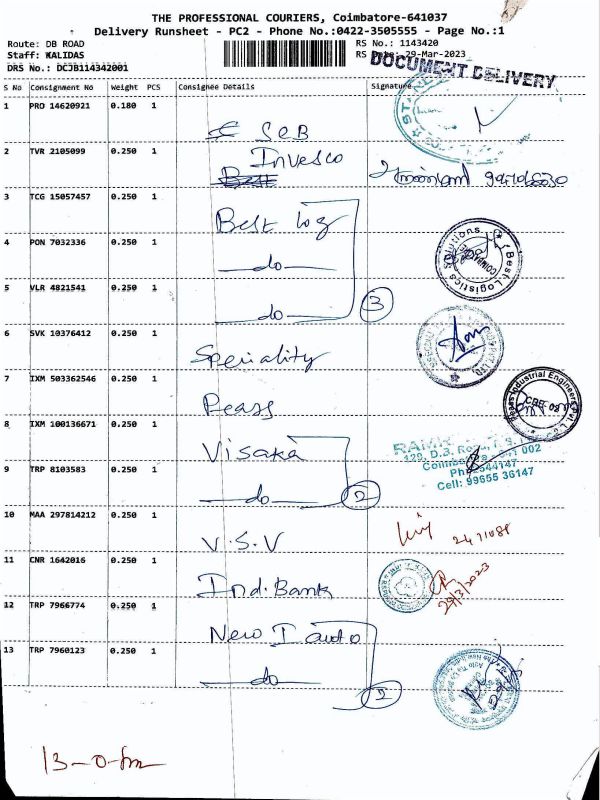 THE PROFESSIONAL COURIERS, Coimbatore-641037
Delivery Runsheet - PC2 - Phone No.:0422-3505555 - Page No.:1
Route: DB ROAD
RS No.: 1143420
Staff: KALIDAS
RS Date: 29-Mar-2023
DRS No.: DC3B114342001
DOCUMENT DELIVERY
S No Consignment No Weight PCS Consignee Details Signature
1 PRO 14620921 0.180 1 SCB
2 TVR 2105099 0.250 1 Invesco
3 TCG 15057457 0.250 1 Best log
4 PON 7032336 0.250 1 do
Best Logistics Solutions
5 VLR 4821541 0.250 1 do 3
6 SVK 10376412 0.250 1 Speciality
7 IXM 503362546 0.250 1 Peass
Peass Industrial Engineers
8 IXM 100136671 0.250 1 Visaka
Cell: 99655 36147
9 TRP 8103583 0.250 1 do 2
10 MAA 297814212 0.250 1 V.S.V
11 CNR 1642016 0.250 1 Ind. Bank
29/3/2023
12 TRP 7966774 0.250 1 New I auto
13 TRP 7960123 0.250 1 do 2